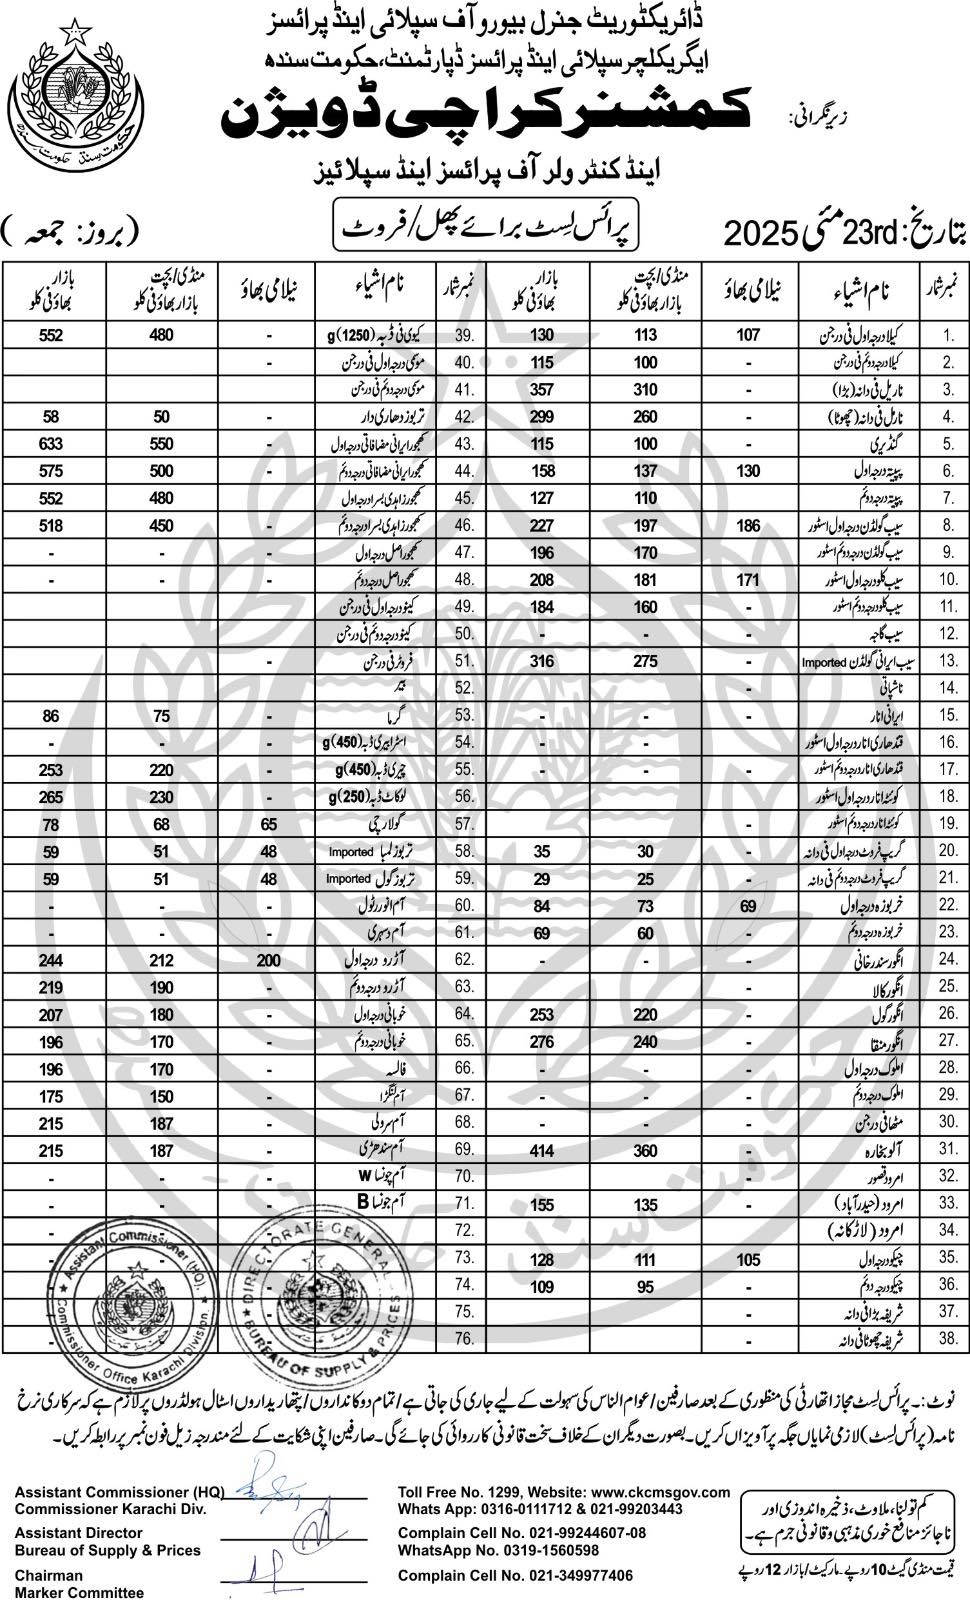 ڈائریکٹوریٹ جنرل بیورو آف سپلائی اینڈ پرائسز
ایگریکلچر سپلائی اینڈ پرائسز ڈپارٹمنٹ، حکومت سندھ
زیر نگرانی: کمشنر کراچی ڈویژن
اینڈ کنٹرولر آف پرائسز اینڈ سپلائیز
بتاریخ: 23rd مئی 2025 پرائس لِسٹ برائے پھل/فروٹ (بروز: جمعہ)
نمبر شمار نام اشیاء نیلامی بھاؤ منڈی/بچت بازار بھاؤ فی کلو بازار بھاؤ فی کلو نمبر شمار نام اشیاء نیلامی بھاؤ منڈی/بچت بازار بھاؤ فی کلو بازار بھاؤ فی کلو
1. کیلا درجہ اول فی درجن 107 113 130 39. کیوی فی ڈبہ (1250)g - 480 552
2. کیلا درجہ دوئم فی درجن - 100 115 40. موسمی درجہ اول فی درجن -
3. ناریل فی دانہ (بڑا) - 310 357 41. موسمی درجہ دوئم فی درجن
4. نارل فی دانہ (چھوٹا) - 260 299 42. تربوز دھاری دار - 50 58
5. گنڈیری - 100 115 43. کھجور ایرانی مضافاتی درجہ اول - 550 633
6. پپیتہ درجہ اول 130 137 158 44. کھجور ایرانی مضافاتی درجہ دوئم - 500 575
7. پپیتہ درجہ دوئم - 110 127 45. کھجور زاہدی بسرا درجہ اول - 480 552
8. سیب گولڈن درجہ اول اسٹور 186 197 227 46. کھجور زاہدی بسرا درجہ دوئم - 450 518
9. سیب گولڈن درجہ دوئم اسٹور - 170 196 47. کھجور اصل درجہ اول - - -
10. سیب کلو درجہ اول اسٹور 171 181 208 48. کھجور اصل درجہ دوئم - - -
11. سیب کلو درجہ دوئم اسٹور - 160 184 49. کینو درجہ اول فی درجن -
12. سیب گاجہ - - - 50. کینو درجہ دوئم فی درجن
13. سیب ایرانی گولڈن Imported - 275 316 51. فروٹر فی درجن -
14. ناشپاتی - 52. بیر
15. ایرانی انار - - - 53. گرما - 75 86
16. قندھاری انار درجہ اول اسٹور - - - 54. اسٹرابیری ڈبہ (450)g - - -
17. قندھاری انار درجہ دوئم اسٹور - - - 55. چیری ڈبہ (450)g - 220 253
18. کوئٹہ انار درجہ اول اسٹور - 56. لوکاٹ ڈبہ (250)g - 230 265
19. کوئٹہ انار درجہ دوئم اسٹور - 57. گولارچی 65 68 78
20. گریپ فروٹ درجہ اول فی دانہ - 30 35 58. تربوز لمبا Imported 48 51 59
21. گریپ فروٹ درجہ دوئم فی دانہ - 25 29 59. تربوز گول Imported 48 51 59
22. خربوزہ درجہ اول 69 73 84 60. آم انور رٹول - - -
23. خربوزہ درجہ دوئم - 60 69 61. آم دسہری - - -
24. انگور سندر خانی - - - 62. آڑو درجہ اول 200 212 244
25. انگور کالا 63. آڑو درجہ دوئم - 190 219
26. انگور گول - 220 253 64. خوبانی درجہ اول - 180 207
27. انگور منقا - 240 276 65. خوبانی درجہ دوئم - 170 196
28. املوک درجہ اول - - - 66. فالسہ - 170 196
29. املوک درجہ دوئم - - - 67. آم لنگڑا - 150 175
30. مٹھا فی درجن - - - 68. آم سرولی - 187 215
31. آلو بخارہ - 360 414 69. آم سندھڑی - 187 215
32. امرود قصور - 70. آم چونسا W - - -
33. امرود (حیدرآباد) - 135 155 71. آم چونسا B - - -
34. امرود (لاڑکانہ) 72. -
35. چیکو درجہ اول 105 111 128 73.
36. چیکو درجہ دوئم - 95 109 74.
37. شریفہ بڑا فی دانہ - 75.
38. شریفہ چھوٹا فی دانہ - 76. -
Assistant Commissioner (HQ).
Commissioner Office Karachi Division
DIRECTORATE GENERAL
BUREAU OF SUPPLY & PRICES
نوٹ:۔ پرائس لِسٹ مجاز اتھارٹی کی منظوری کے بعد صارفین/عوام الناس کی سہولت کے لیے جاری کی جاتی ہے/تمام دوکانداروں/پتھاریداروں اسٹال ہولڈروں پر لازم ہے کہ سرکاری نرخ
نامہ (پرائس لِسٹ) لازمی نمایاں جگہ پر آویزاں کریں۔ بصورت دیگر ان کے خلاف سخت قانونی کارروائی کی جائے گی۔ صارفین اپنی شکایت کے لئے مندرجہ زیل فون نمبر پر رابطہ کریں۔
Assistant Commissioner (HQ)
Commissioner Karachi Div.
Assistant Director
Bureau of Supply & Prices
Chairman
Marker Committee
Toll Free No. 1299, Website: www.ckcmsgov.com
Whats App: 0316-0111712 & 021-99203443
Complain Cell No. 021-99244607-08
WhatsApp No. 0319-1560598
Complain Cell No. 021-349977406
کم تولنا، ملاوٹ، ذخیرہ اندوزی اور
ناجائز منافع خوری مذہبی و قانونی جرم ہے۔
قیمت منڈی گیٹ 10 روپے۔ مارکیٹ/بازار 12 روپے